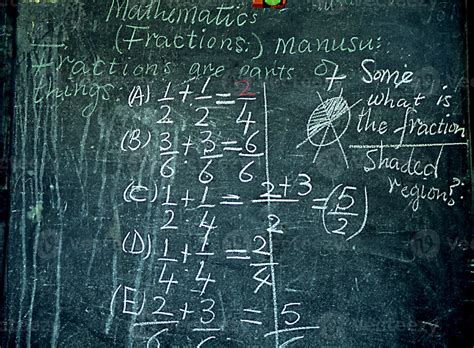 Mathematics
(Fractions:) manusu:
Fractions are parts of
things:
(A) 1/2 + 1/2 = 2/4
(B) 3/6 + 3/6 = 6/6
(C) 1/2 + 1/4 = 2+3/2 = (5/2)
(D) 1/4 + 1/4 = 2/4
(E) 2/6 + 3/6 = 5/6
Some
what is
the fraction
Shaded
region?